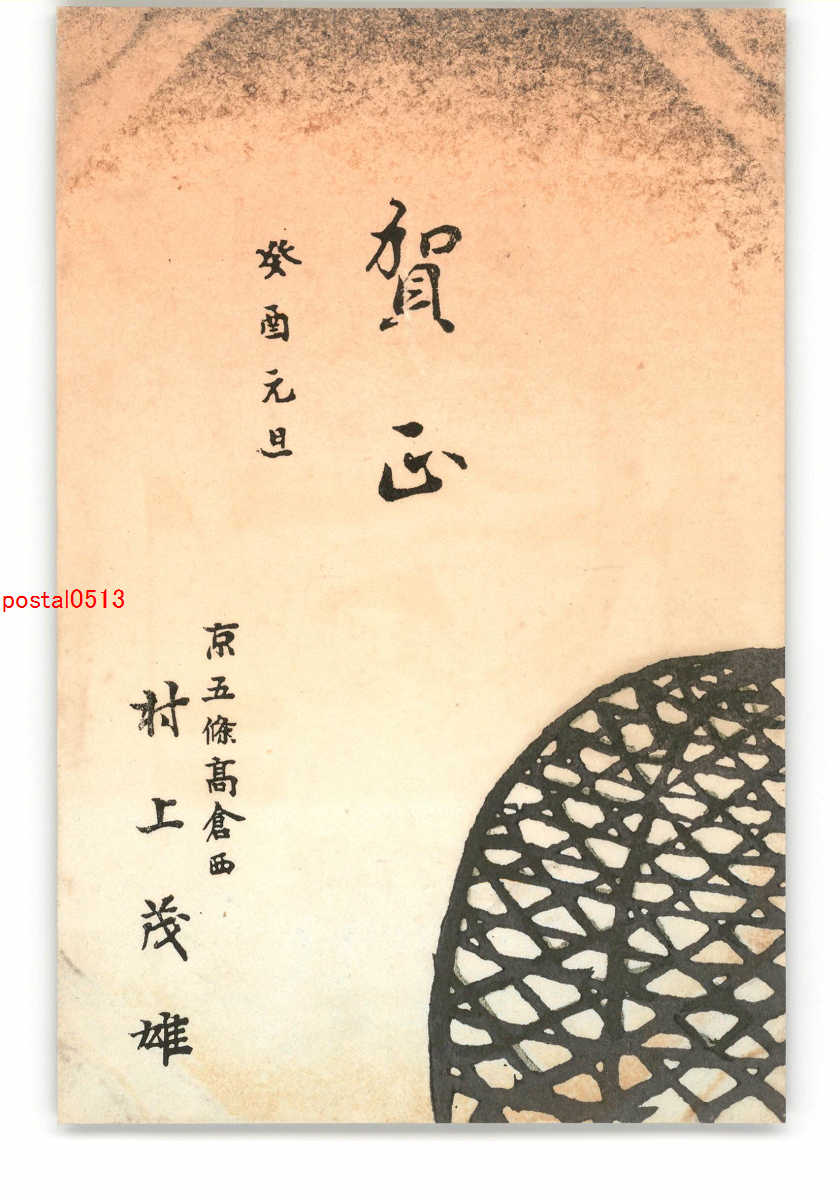 賀正
癸酉元旦
京五條高倉西
村上茂雄
postal0513